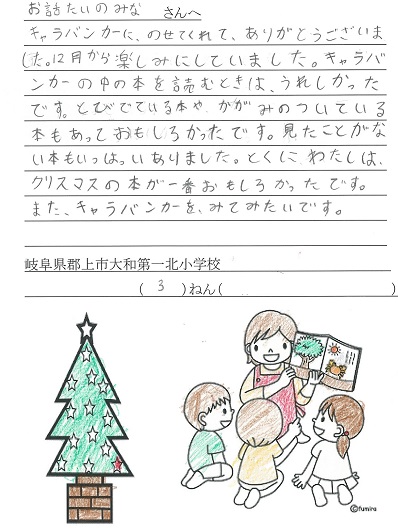 お話たいのみな さんへ
キャラバンカーに、のせてくれて、ありがとうございま
した。12月から楽しみにしていました。キャラバ
ンカーの中の本を読むときは、うれしかった
です。とびでている本や、かがみのついている
本もあっておもしろかったです。見たことがな
い本もいっぱいありました。とくに、わたしは、
クリスマスの本が一番おもしろかったです。
また、キャラバンカーを、みてみたいです。
岐阜県郡上市大和第一北小学校
( 3 )ねん( )
©fumira